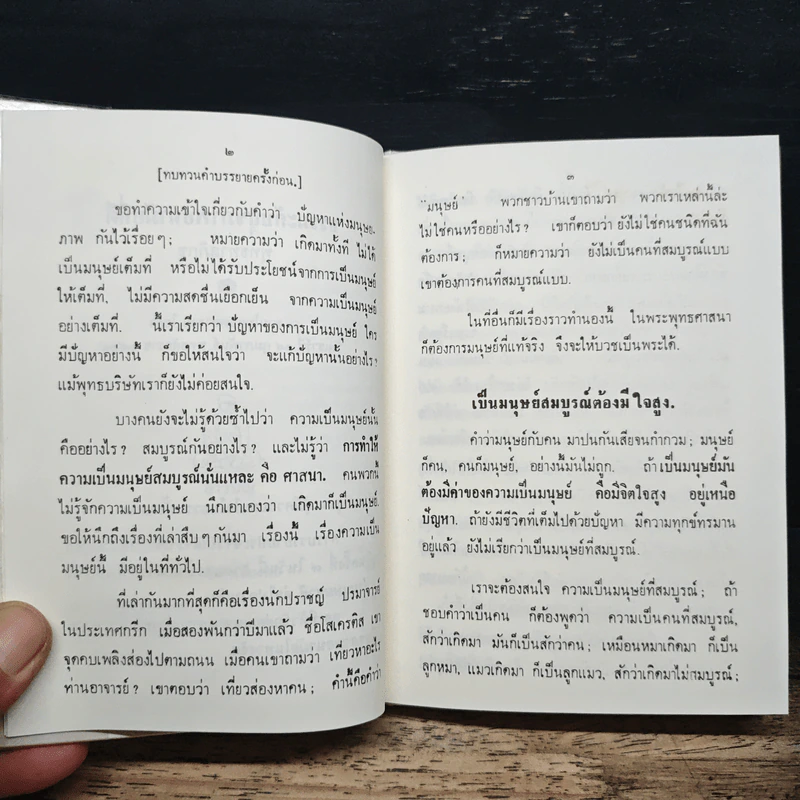 ๒
[ทบทวนคำบรรยายครั้งก่อน.]
ขอทำความเข้าใจเกี่ยวกับคำว่า ปัญหาแห่งมนุษย-
ภาพ กันไว้เรื่อยๆ; หมายความว่า เกิดมาทั้งที ไม่ได้
เป็นมนุษย์เต็มที่ หรือไม่ได้รับประโยชน์จากการเป็นมนุษย์
ให้เต็มที่, ไม่มีความสดชื่นเยือกเย็น จากความเป็นมนุษย์
อย่างเต็มที่. นี้เราเรียกว่า ปัญหาของการเป็นมนุษย์ ใคร
มีปัญหาอย่างนี้ ก็ขอให้สนใจว่า จะแก้ปัญหานั้นอย่างไร?
แม้พุทธบริษัทเราก็ยังไม่ค่อยสนใจ.
บางคนยังจะไม่รู้ด้วยซ้ำไปว่า ความเป็นมนุษย์นั้น
คืออย่างไร? สมบูรณ์กันอย่างไร? และไม่รู้ว่า การทำให้
ความเป็นมนุษย์สมบูรณ์นั่นแหละ คือ ศาสนา. คนพวกนี้
ไม่รู้จักความเป็นมนุษย์ นึกเอาเองว่า เกิดมาก็เป็นมนุษย์.
ขอให้นึกถึงเรื่องที่เล่าสืบๆกันมา เรื่องนี้ เรื่องความเป็น
มนุษย์นี้ มีอยู่ในที่ทั่วไป.
ที่เล่ากันมากที่สุดก็คือเรื่องนักปราชญ์ ปรมาจารย์
ในประเทศกรีก เมื่อสองพันกว่าปีมาแล้ว ชื่อโสเครติส เขา
จุดคบเพลิงส่องไปตามถนน เมื่อคนเขาถามว่า เที่ยวหาอะไร
ท่านอาจารย์? เขาตอบว่า เที่ยวส่องหาคน; คำนี้คือคำว่า
๓
"มนุษย์" พวกชาวบ้านเขาถามว่า พวกเราเหล่านี้ล่ะ
ไม่ใช่คนหรืออย่างไร? เขาก็ตอบว่า ยังไม่ใช่คนชนิดที่ฉัน
ต้องการ; ก็หมายความว่า ยังไม่เป็นคนที่สมบูรณ์แบบ
เขาต้องการคนที่สมบูรณ์แบบ.
ในที่อื่นก็มีเรื่องราวทำนองนี้ ในพระพุทธศาสนา
ก็ต้องการมนุษย์ที่แท้จริง จึงจะให้บวชเป็นพระได้.
เป็นมนุษย์สมบูรณ์ต้องมีใจสูง.
คำว่ามนุษย์กับคน มาปนกันเสียจนกำกวม; มนุษย์
ก็คน, คนก็มนุษย์, อย่างนี้มันไม่ถูก. ถ้า เป็นมนุษย์มัน
ต้องมีค่าของความเป็นมนุษย์ คือมีจิตใจสูง อยู่เหนือ
ปัญหา. ถ้ายังมีชีวิตที่เต็มไปด้วยปัญหา มีความทุกข์ทรมาน
อยู่แล้ว ยังไม่เรียกว่าเป็นมนุษย์ที่สมบูรณ์.
เราจะต้องสนใจ ความเป็นมนุษย์ที่สมบูรณ์; ถ้า
ชอบคำว่าเป็นคน ก็ต้องพูดว่า ความเป็นคนที่สมบูรณ์,
สักว่าเกิดมา มันก็เป็นสักว่าคน; เหมือนหมาเกิดมา ก็เป็น
ลูกหมา, แมวเกิดมา ก็เป็นลูกแมว, สักว่าเกิดมาไม่สมบูรณ์;